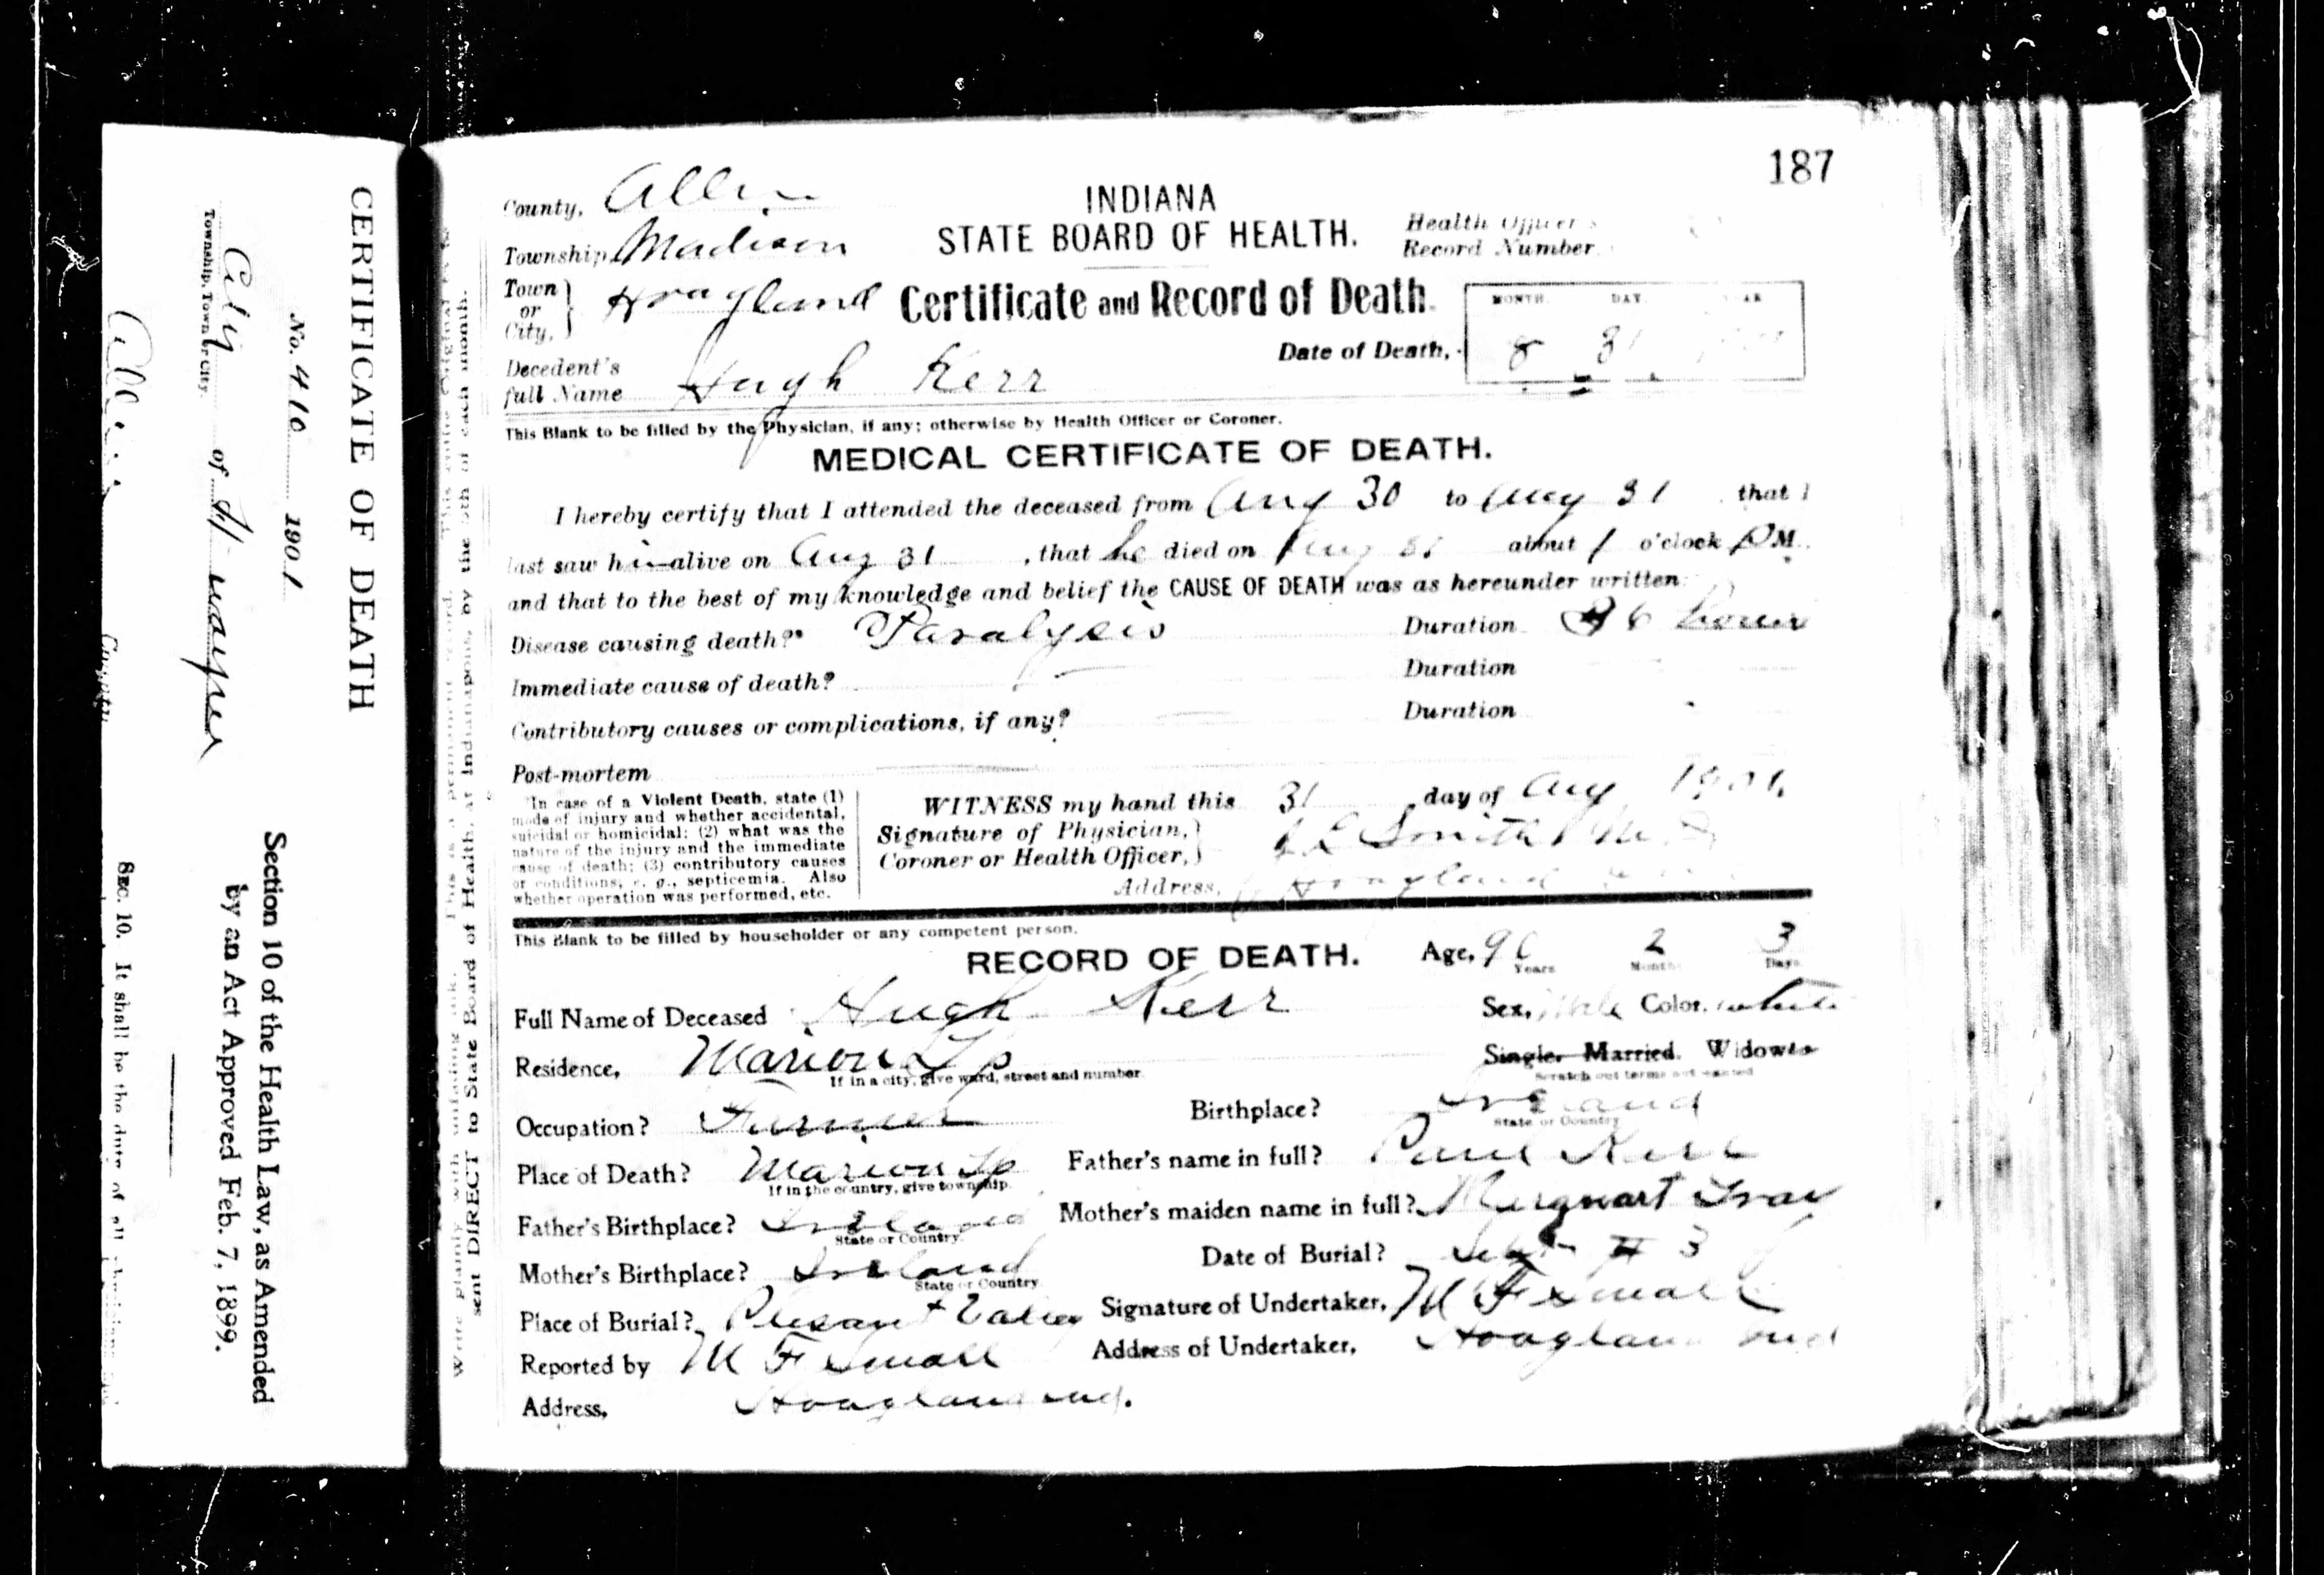 187
County, Allen
INDIANA
STATE BOARD OF HEALTH.
Health Officer's
Record Number
Township, Madison
Town or City, Hoagland
Certificate and Record of Death.
MONTH. DAY. YEAR
Date of Death, 8 31
Decedent's full Name Hugh Kerr
This Blank to be filled by the Physician, if any; otherwise by Health Officer or Coroner.
MEDICAL CERTIFICATE OF DEATH.
I hereby certify that I attended the deceased from Aug 30 to Aug 31 that I
last saw him alive on Aug 31, that he died on Aug 31 about 1 o'clock P M.
and that to the best of my knowledge and belief the CAUSE OF DEATH was as hereunder written:
Disease causing death?* Paralysis Duration 36 hours
Immediate cause of death? Duration
Contributory causes or complications, if any? Duration
Post-mortem
*In case of a Violent Death, state (1)
mode of injury and whether accidental,
suicidal or homicidal; (2) what was the
nature of the injury and the immediate
cause of death; (3) contributory causes
or conditions, e. g., septicemia. Also
whether operation was performed, etc.
WITNESS my hand this 31 day of Aug 1901.
Signature of Physician, Coroner or Health Officer, Smith M.D.
Address, Hoagland
This Blank to be filled by householder or any competent person.
RECORD OF DEATH. Age, 90 Years 2 Months 3 Days
Full Name of Deceased Hugh Kerr Sex, Male Color, white
Residence, Marion Tp
If in a city, give ward, street and number.
Single. Married. Widow
Scratch out terms not wanted
Occupation? Farmer Birthplace? Ireland
State or Country
Place of Death? Marion Tp Father's name in full? Paul Kerr
If in the country, give township.
Father's Birthplace? Ireland Mother's maiden name in full?
State or Country.
Mother's Birthplace? Ireland Date of Burial? Sept 3
State or Country
Place of Burial? Plesant Valley Signature of Undertaker, M F Small
Reported by M F Small Address of Undertaker, Hoagland Ind
Address, Hoagland Ind.
CERTIFICATE OF DEATH
No. 410 1901
City of Ft wayne
Township, Town or City.
Allen County
Section 10 of the Health Law, as Amended
by an Act Approved Feb. 7, 1899.
SEC. 10. It shall be the duty of all physicians
sent DIRECT to State Board of Health, at Indianapolis, by the 5th of each month.